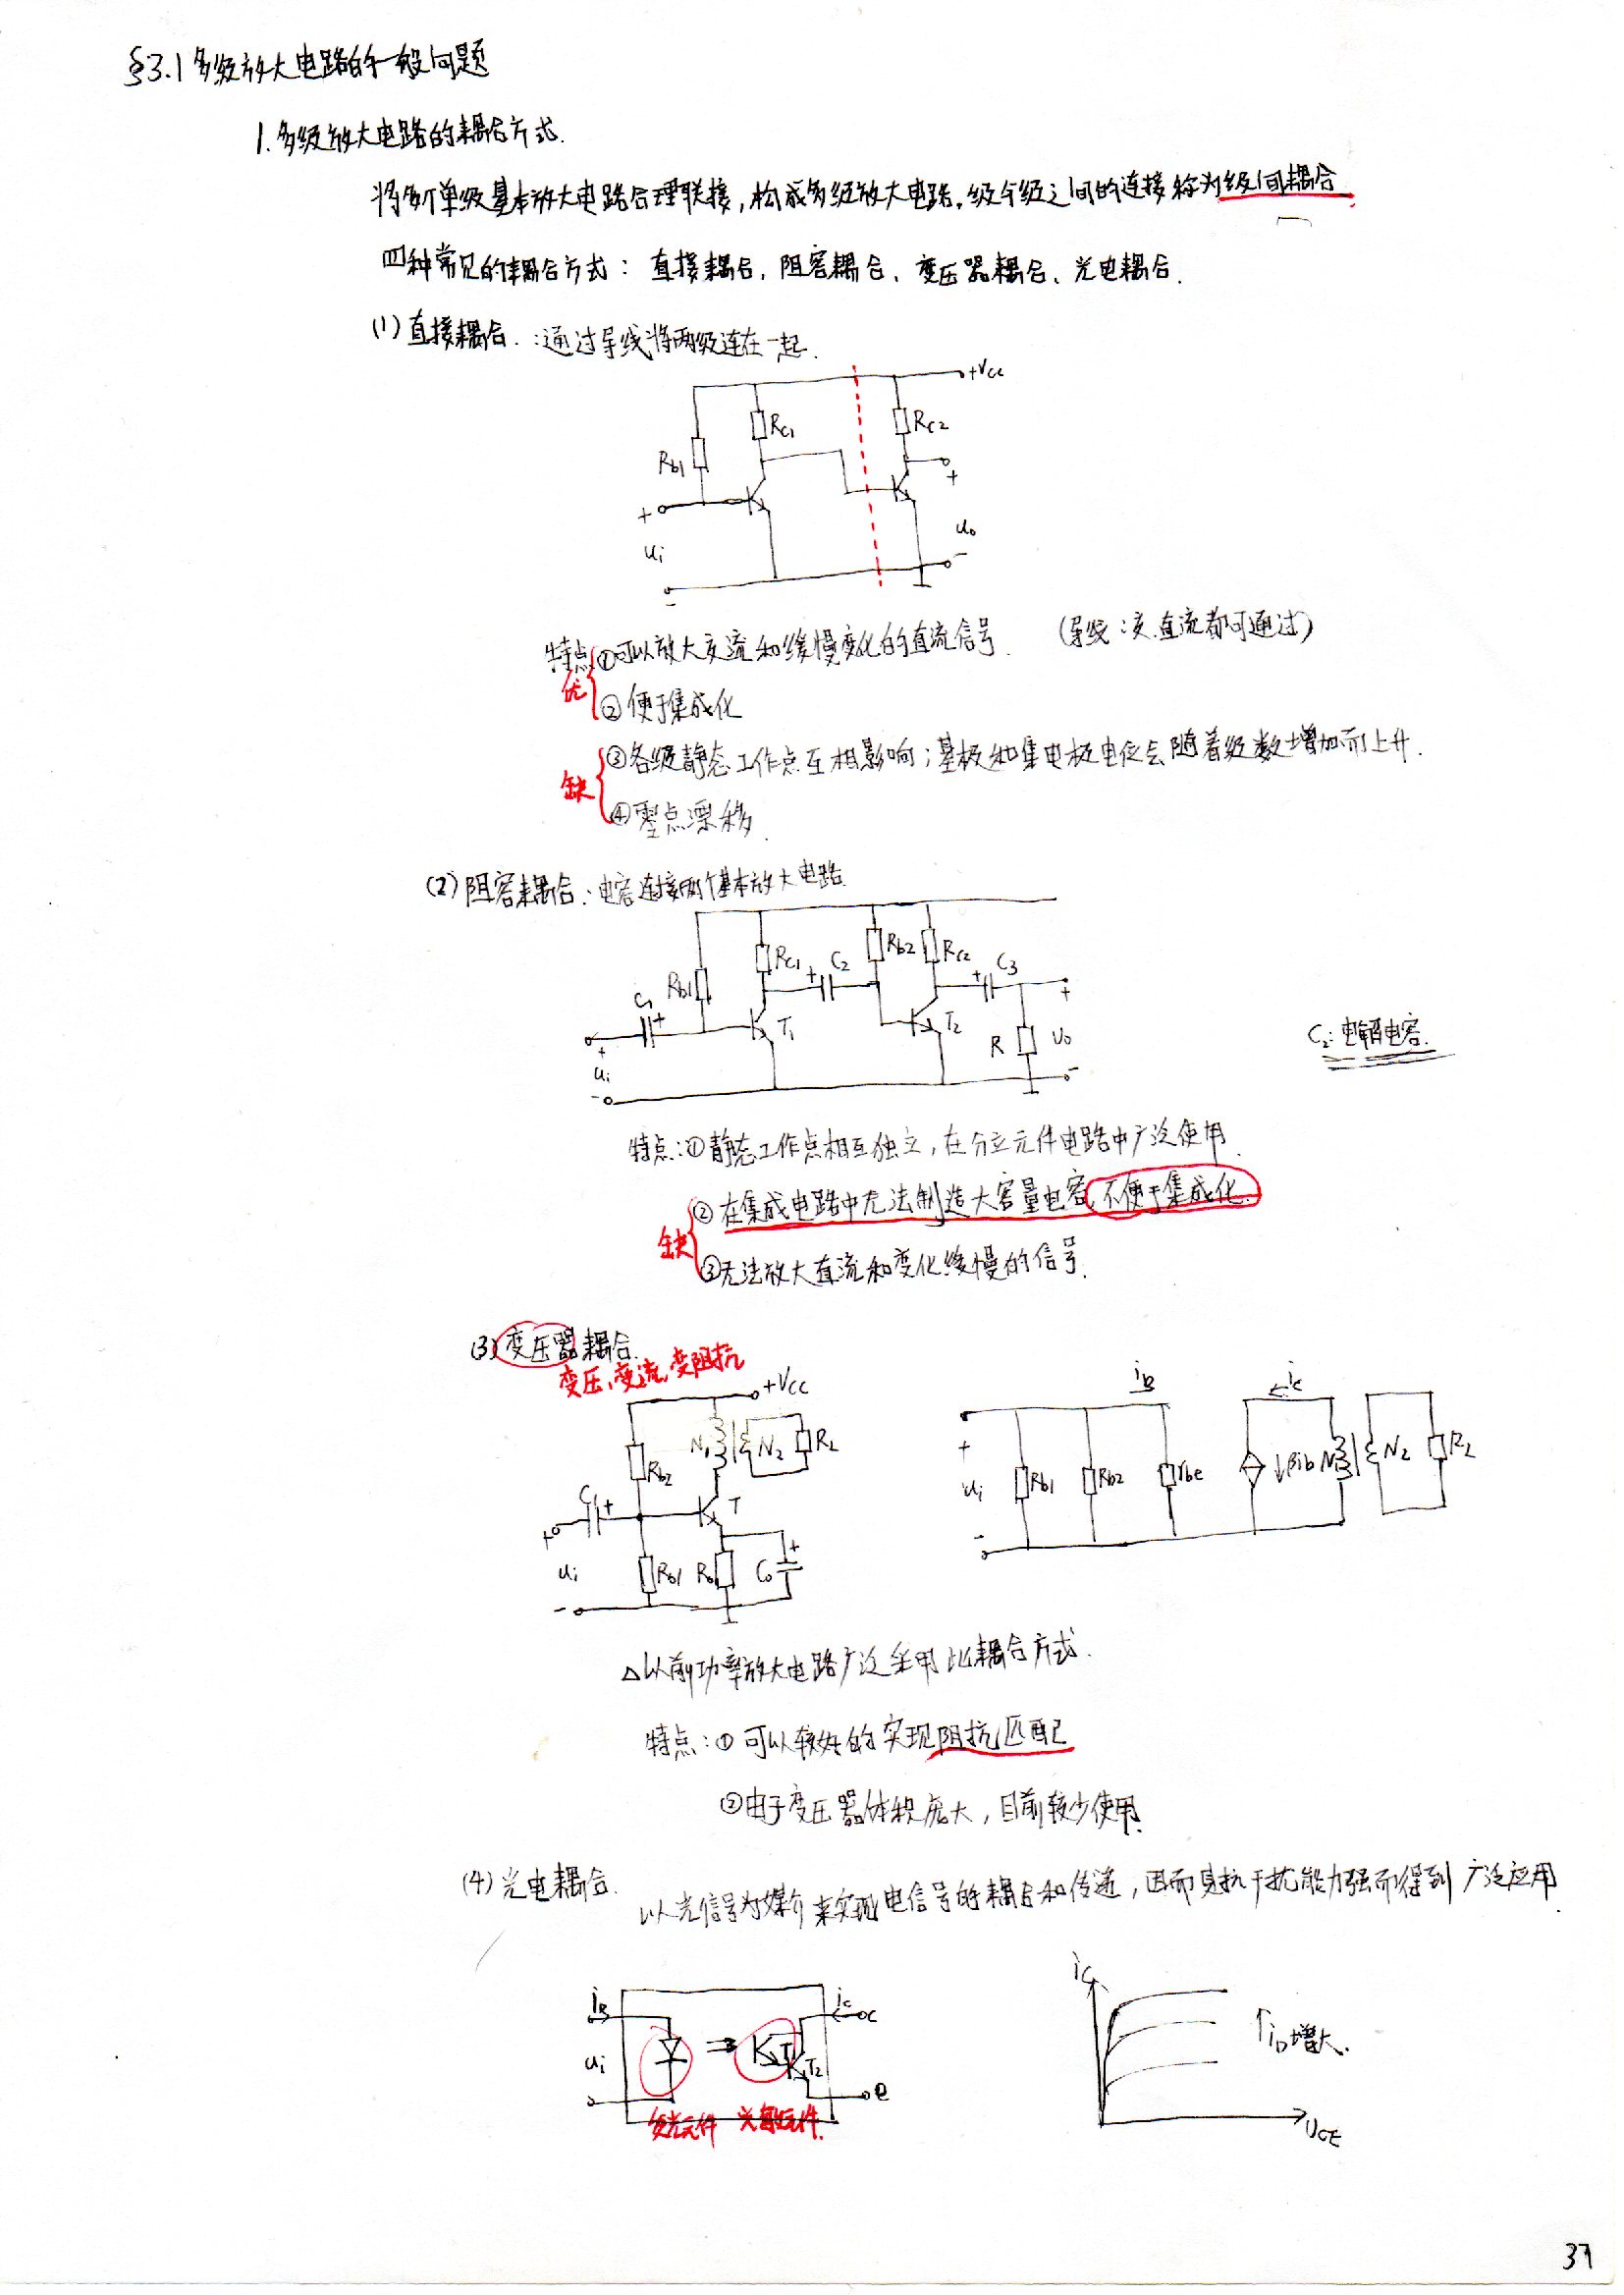 §3.1 多级放大电路的一般问题
1. 多级放大电路的耦合方式.
将多个单级基本放大电路合理联接，构成多级放大电路。级与级之间的连接称为级间耦合
四种常见的耦合方式：直接耦合、阻容耦合、变压器耦合、光电耦合.
(1) 直接耦合.：通过导线将两级连在一起.
+Vcc
Rc1 Rc2
Rb1
+ +
ui uo
- -
特点 ①可以放大交流和缓慢变化的直流信号. (导线：交.直流都可通过)
优
②便于集成化
③各级静态工作点互相影响；基极和集电极电位会随着级数增加而上升.
缺
④零点漂移.
(2) 阻容耦合：电容连接两个基本放大电路.
Rb1 Rc1 + C2 Rb2 Rc2 + C3
C1 + T1 T2 +
+ R Uo
ui -
-
C2：电解电容.
特点：①静态工作点相互独立，在分立元件电路中广泛使用.
②在集成电路中无法制造大容量电容,不便于集成化.
缺
③无法放大直流和变化缓慢的信号.
(3) 变压器耦合.
变压、变流、变阻抗
+Vcc
N1 N2 RL
Rb2
C1 + T
+
ui Rb1 +
-
iB ic
+
ui Rb1 Rb2 rbe ↓βib N1 N2 RL
-
△以前功率放大电路广泛采用此耦合方式.
特点：①可以较好的实现阻抗匹配
②由于变压器体积庞大，目前较少使用.
(4) 光电耦合.
以光信号为媒介来实现电信号的耦合和传递，因而其抗干扰能力强而得到广泛应用.
ic c
ui T1 T2
e
发光元件 光敏元件.
ic
↑iD增大.
UCE
37